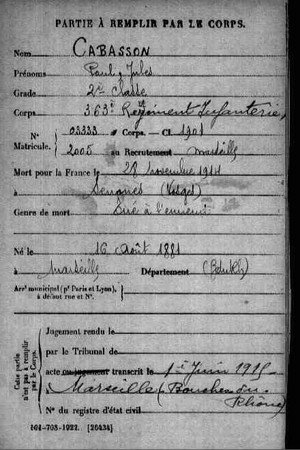 PARTIE À REMPLIR PAR LE CORPS.
Nom CABASSON
Prénoms Paul, Jules
Grade 2e Classe
Corps 363e Régiment Infanterie,
N° 03333 au Corps. — Cl. 1901
Matricule. 2005 au Recrutement Marseille
Mort pour la France le 28 novembre 1914
à Senones (Vosges)
Genre de mort Tué à l'ennemi
Né le 16 Août 1881
à Marseille Département (Bdu Rh)
Arrt municipal (pr Paris et Lyon),
à défaut rue et N°.
Cette partie
n'est pas à remplir
par le Corps.
Jugement rendu le
par le Tribunal de
acte ou jugement transcrit le 1er Juin 1915
à Marseille (Bouches du
Rhône)
N° du registre d'état civil
501-708-1922. [26434]